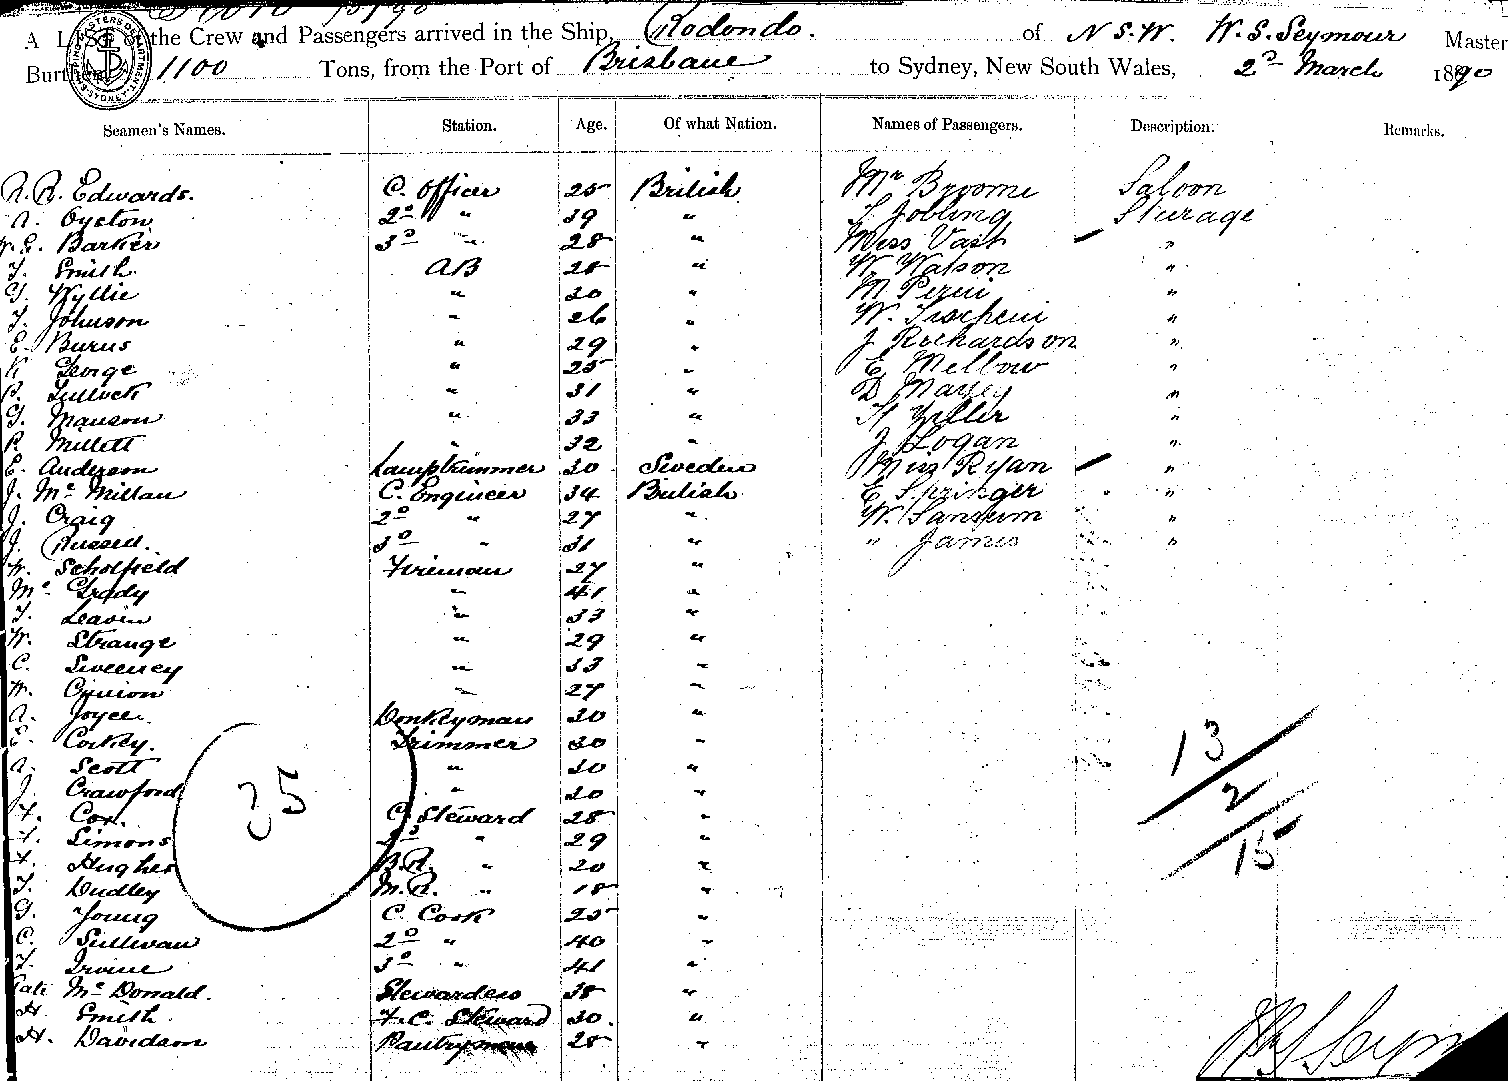 A LIST of the Crew and Passengers arrived in the Ship, Rodondo. of N S.W. W. S. Seymour Master
Burthen 1100 Tons, from the Port of Brisbane to Sydney, New South Wales, 2nd March 1890
Seamen's Names. Station. Age. Of what Nation. Names of Passengers. Description. Remarks.
R. Edwards. C. Officer 25 British Mr Broome Saloon
A. Oyston 2o " 39 " Jobling Sturage
E. Barker 3o " 28 " Miss Vash "
T. Smith AB 28 " W Watson "
G. Wyllie " 30 " M. "
T. Johnson " 26 " W. "
E. Burns " 29 " J Richardson "
George " 25 " E Mellow "
P. Tullock " 31 " D "
G. Manson " 33 " H Zeller "
P. Millett " 32 " J Logan "
E. Anderson Lamptrimmer 30 Sweden Miss Ryan "
J. Mc Millan C. Engineer 34 British E Springer "
J. Craig 2o " 27 " W. "
J. Russell. 3o " 31 " " James "
W. Scholfield Fireman 27 "
Mc Grady " 41 "
T. Leavin " 33 "
W. Strange " 29 "
C. Sweeney " 33 "
W. " 27 "
A. Joyce Donkeyman 30 "
E. Corkey. Trimmer 30 "
A. Scott " 30 "
J. Crawford " 20 "
Cox. C. Steward 28 "
Simons 2o " 29 "
Hughes B.R. " 20 "
T. Dudley M.R. " 18 "
G. Young C. Cook 25 "
C. Sullivan 2o " 40 "
T. Irvine 3o " 41 "
Kate Mc Donald. Stewardess 38 "
H. Smith F.C. Steward 30. "
H. Davidson Pantryman 28 "
35
13
2
15